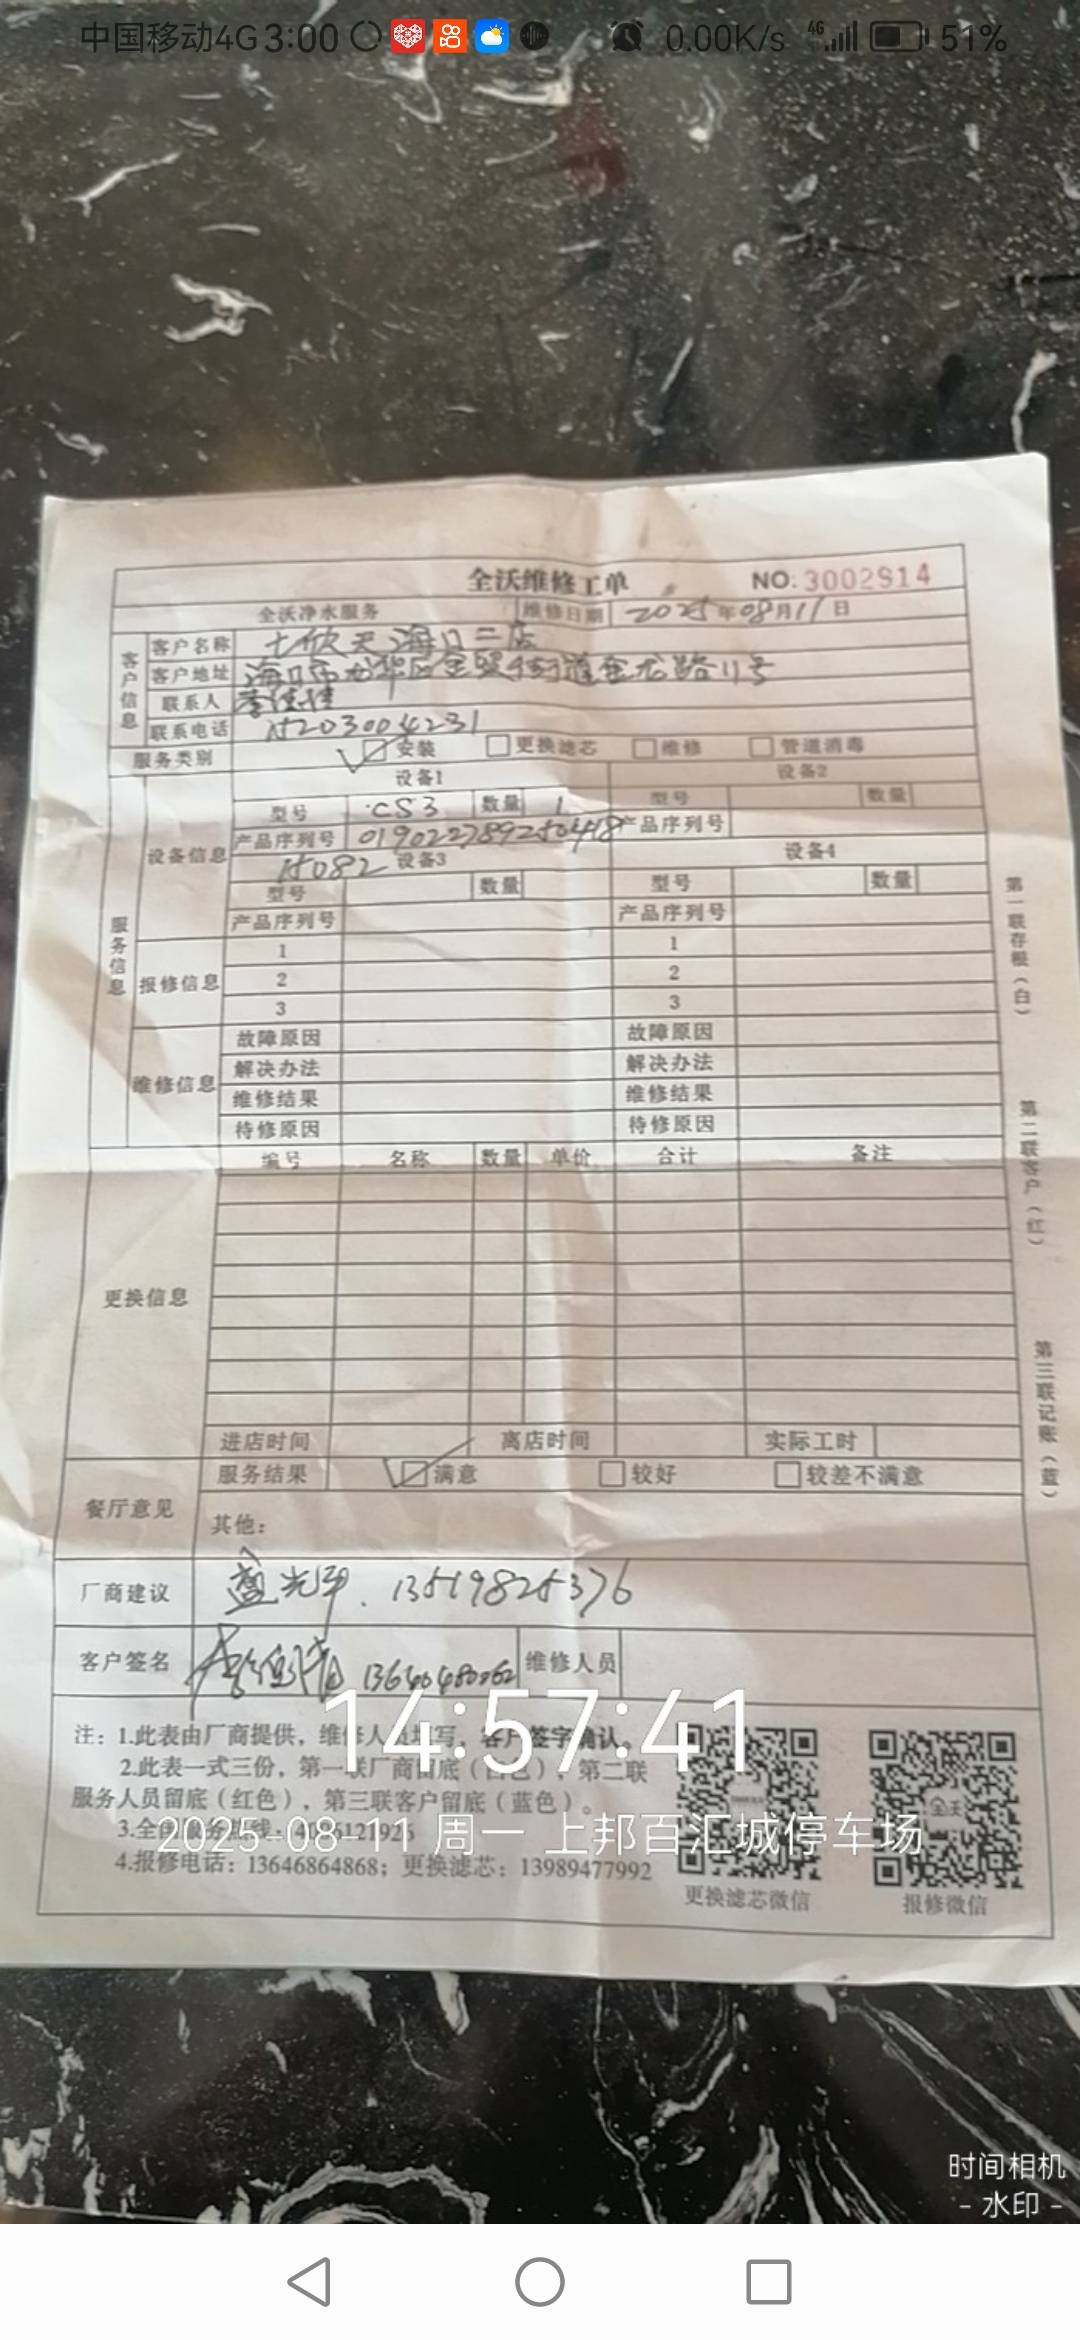 中国移动4G 3:00 0.00K/s 4G 51%
全沃维修工单 NO:3002914
全沃净水服务 维修日期 2025年08月11日
客户信息
客户名称 七欣天海口二店
客户地址 海口市龙华区金贸街道金龙路11号
联系人
联系电话 15203004231
服务类别 安装 更换滤芯 维修 管道消毒
服务信息
设备信息
设备1 设备2
型号 CS3 数量 1 型号 数量
产品序列号 019022789250418 产品序列号
15082 设备3 设备4
型号 数量 型号 数量
产品序列号 产品序列号
报修信息
1 1
2 2
3 3
维修信息
故障原因 故障原因
解决办法 解决办法
维修结果 维修结果
待修原因 待修原因
更换信息
编号 名称 数量 单价 合计 备注
进店时间 离店时间 实际工时
餐厅意见
服务结果 满意 较好 较差不满意
其他：
厂商建议 光平 13519825376
客户签名 维修人员
注：1.此表由厂商提供，维修人员填写，客户签字确认。
2.此表一式三份，第一联厂商留底（白色），第二联
服务人员留底（红色），第三联客户留底（蓝色）。
3.全国服务热线：
4.报修电话：13646864868；更换滤芯：13989477992
更换滤芯微信 报修微信
第一联存根（白）
第二联客户（红）
第三联记账（蓝）
14:57:41
2025-08-11 周一 上邦百汇城停车场
时间相机
- 水印 -